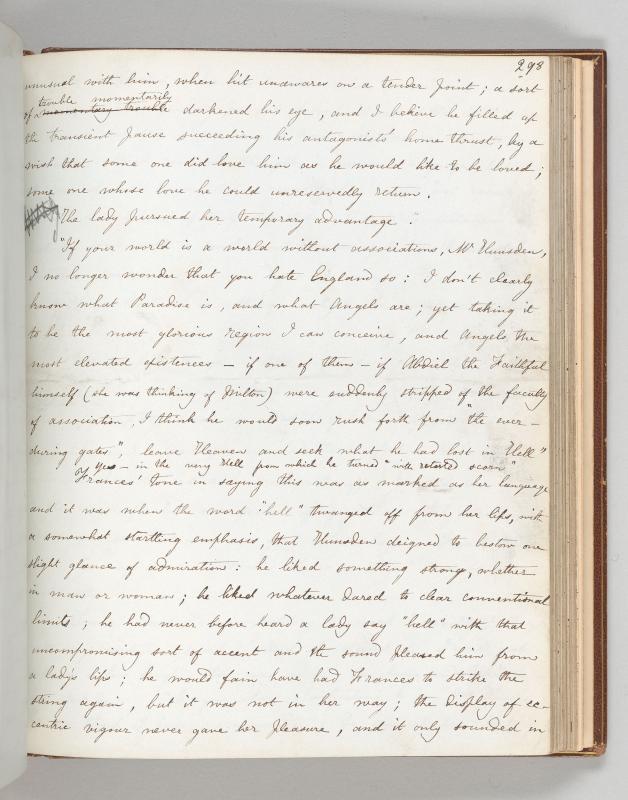 298
unusual with him, when hit unawares on a tender joint; a sort
trouble momentarily
of a momentary trouble darkened his eye, and I believe he filled up
the transient pause succeeding his antagonists' home-thrust, by a
wish that some one did love him as he would like to be loved;
some one whose love he could unreservedly return.
The lady pursued her temporary advantage.
"If your world is a world without associations, Mr Hunsden,
I no longer wonder that you hate England so: I don't clearly
know what Paradise is, and what Angels are; yet taking it
to be the most glorious region I can conceive, and Angels the
most elevated existences — if one of them — if Abdiel the Faithful
himself (she was thinking of Milton) were suddenly stripped of the faculty
of association, I think he would soon rush forth from "the ever-
during gates", leave Heaven and seek what he had lost in Hell"
Yes — in the very Hell from which he turned "with retorted scorn"
Frances' tone in saying this was as marked as her language
and it was when the word "hell" twanged off from her lips, with
a somewhat startling emphasis, that Hunsden deigned to bestow one
slight glance of admiration: he liked something strong, whether
in man or woman; he liked whatever dared to clear conventional
limits; he had never before heard a lady say "hell" with that
uncompromising sort of accent and the sound pleased him from
a lady's lips; he would fain have had Frances to strike the
string again, but it was not in her way; the display of ec-
centric vigour never gave her pleasure, and it only sounded in